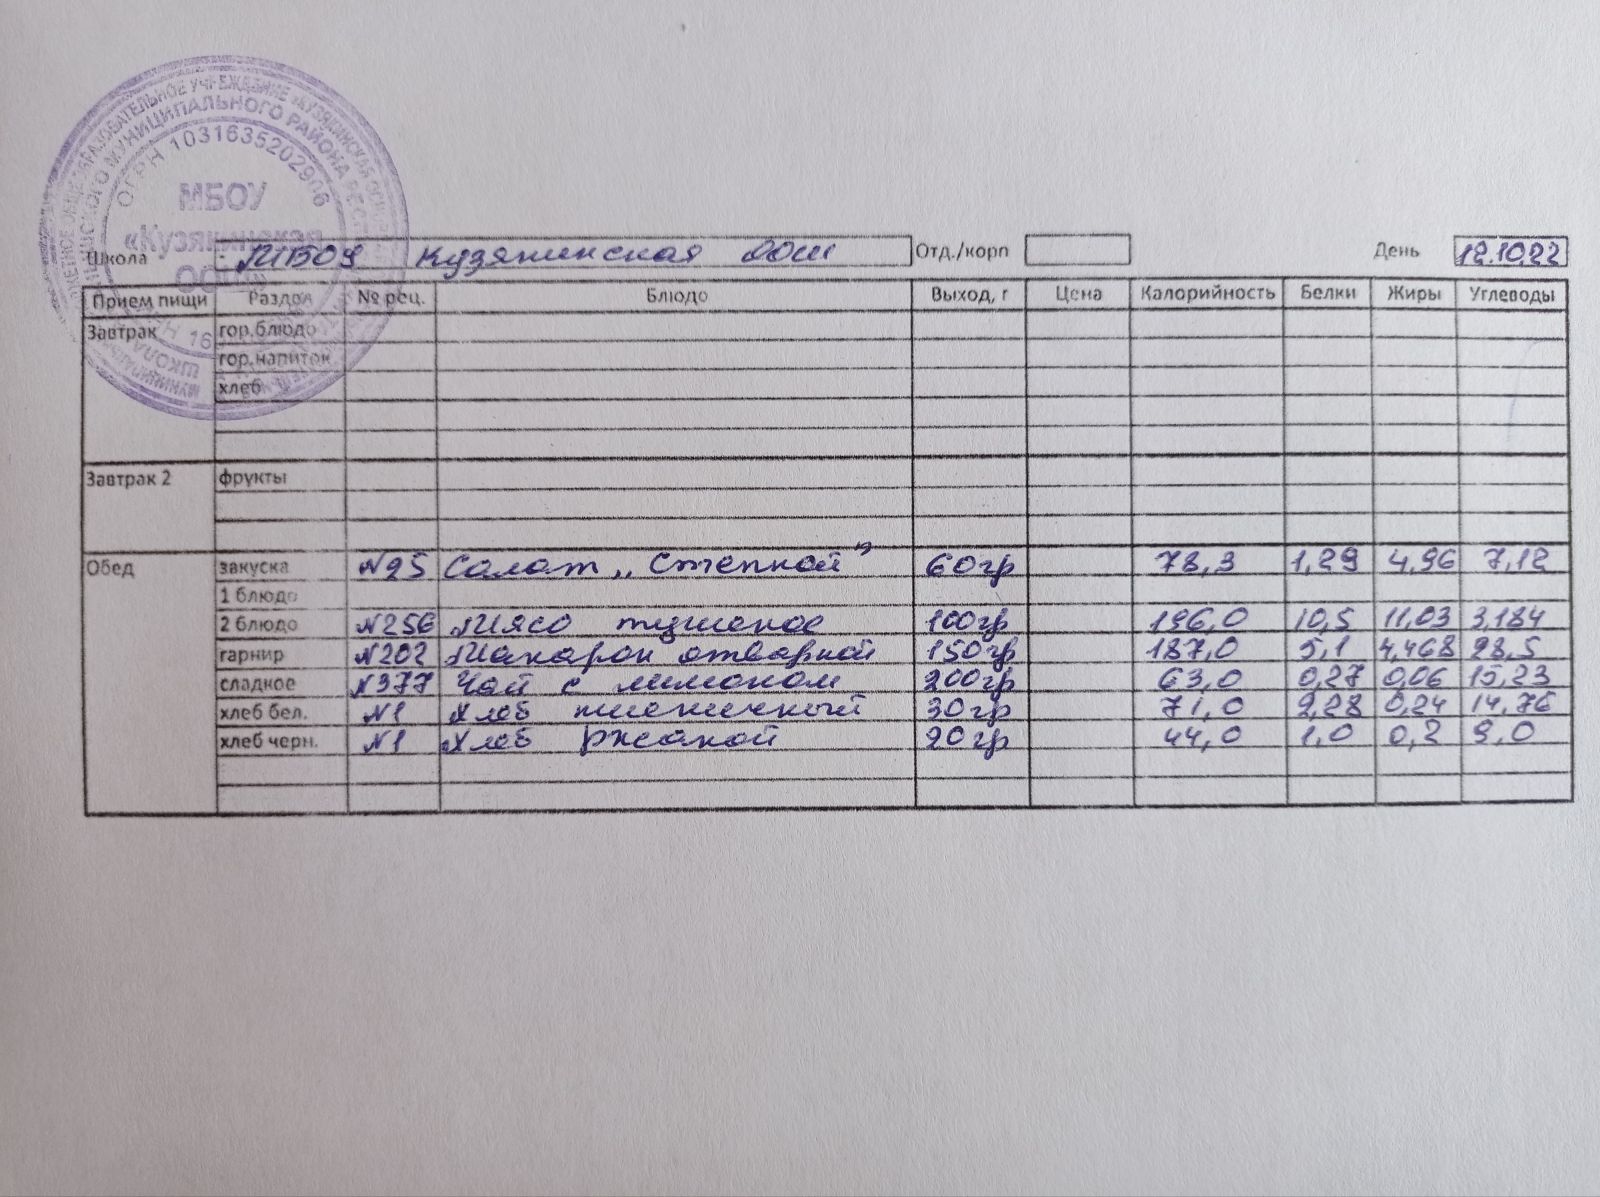 МБОУ
«Кузякинская
ООШ»
ОГРН 1031635202906
Школа МБОУ Кузякинская ООШ Отд./корп День 12.10.22
Прием пищи Раздел № рец. Блюдо Выход, г Цена Калорийность Белки Жиры Углеводы
Завтрак гор.блюдо
гор.напиток
хлеб
Завтрак 2 фрукты
Обед закуска №25 Салат „Степной" 60гр 78,3 1,29 4,96 7,12
1 блюдо
2 блюдо №256 Мясо тушеное 100гр 196,0 10,5 11,03 3,184
гарнир №202 Макарон отварной 150гр 187,0 5,1 4,468 28,5
сладкое №377 Чай с лимоном 200гр 63,0 0,27 0,06 15,23
хлеб бел. №1 Хлеб пшеничный 30гр 71,0 2,28 0,24 14,76
хлеб черн. №1 Хлеб ржаной 20гр 44,0 1,0 0,2 9,0